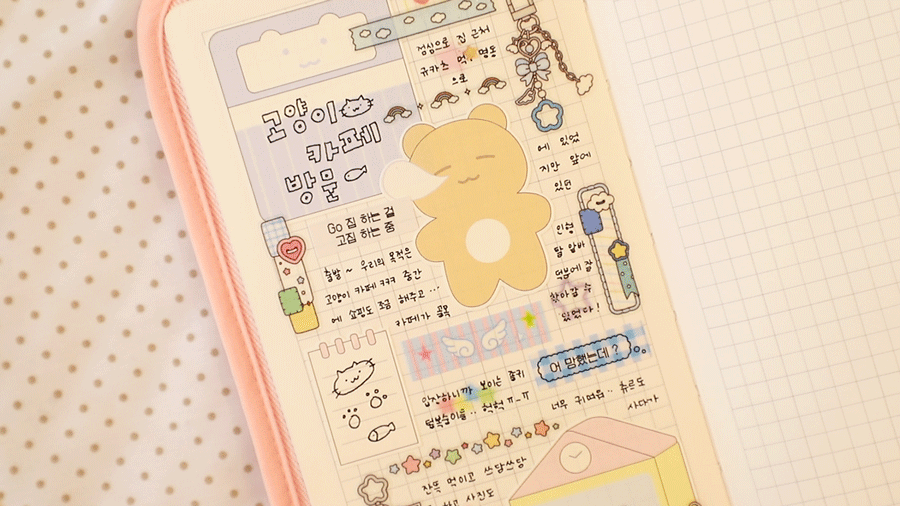 점심으로 집 근처
규카츠 먹고 명동
으로
고양이
카페
방문
에 있었
지만 앞에
있던
인형
탈 알바
덕분에 잘
찾아갈 수
있었다!
Go 집 하는 걸
고집 하는 중
출발 ~ 우리의 목적은
고양이 카페 ㅋㅋㅋ 중간
에 쇼핑도 조금 해주고 ...
카페가 골목
어 맘했는데?
입장하니까 보이는 쫑키
털복숭이들.. 헉헉 ㅠ_ㅠ
너무 귀여움.. 츄르도
사다가
잔뜩 먹이고 쓰담쓰담
하고 사진도